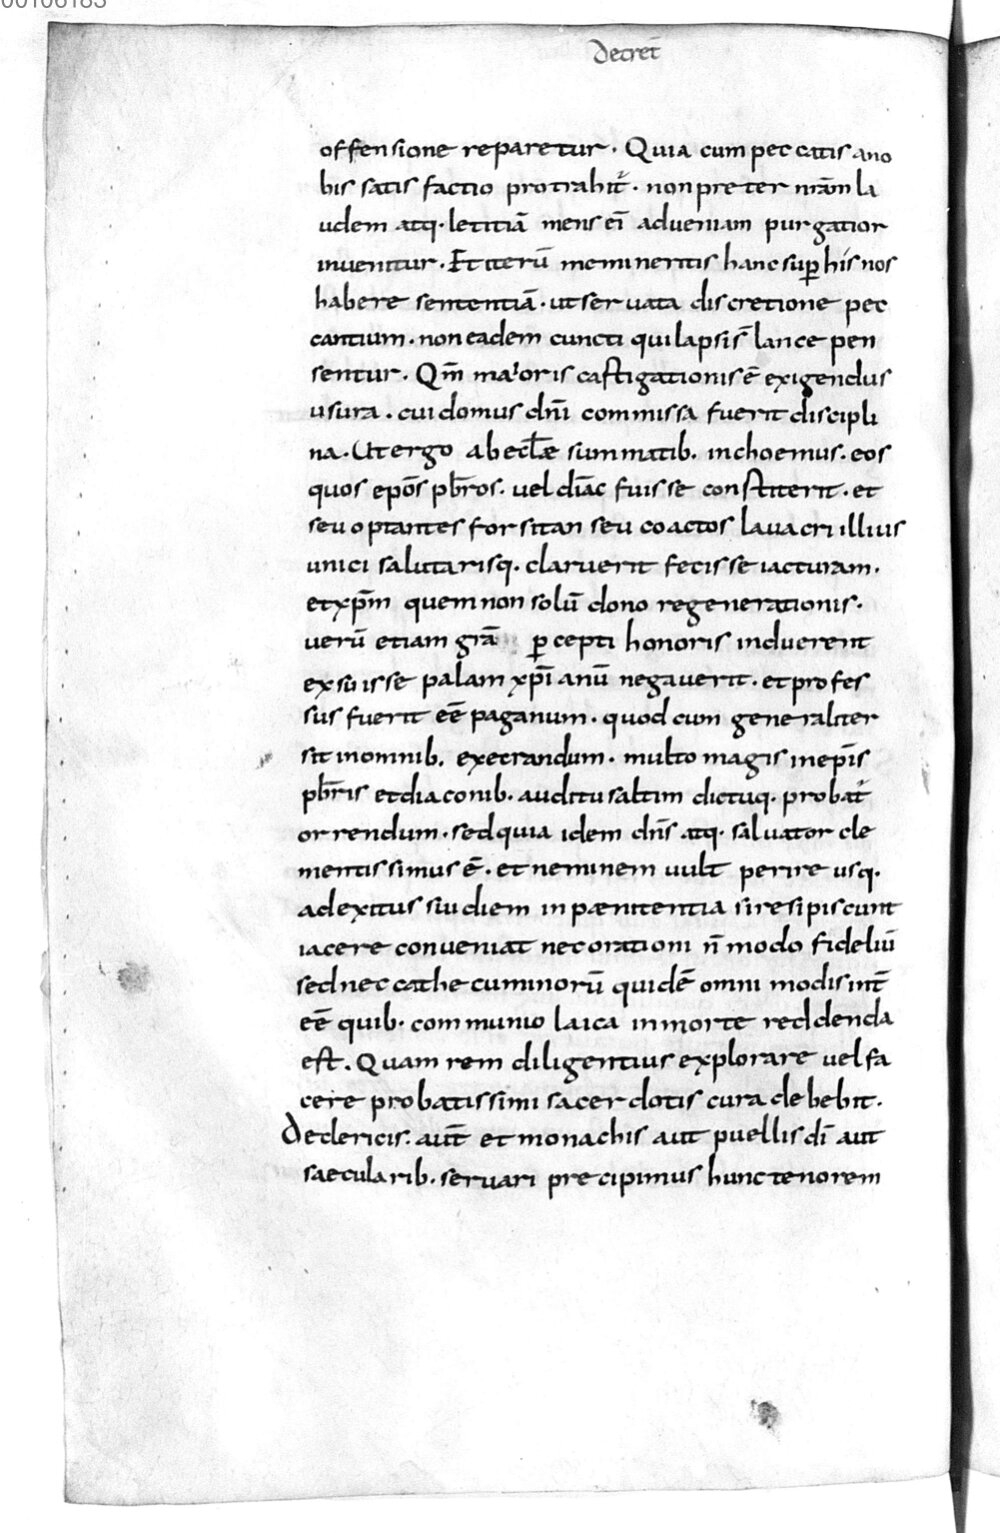 00106183
Decret̄
offensione reparetur. Quia cum peccatis ano
bis satis factio protrahit᷑. non preter nr̄am la
udem atq. letitiā mens eī adueniam purgatior
inuenitur. Et iterū memineritis hanc sup̱ his nos
habere sententiā. ut seruata discretione pec
cantium. non eadem cuncti qui lapsi s̄ lance pen
sentur. Qm̄ maioris castigationis ē exigendus
usura. cui domus dn̄i commissa fuerit discipli
na. Ut ergo ab ecl̄æ summatib. inchoemus. eos
quos ep̄os pb̄ros. uel diāc fuisse constiterit. et
seu optantes forsitan seu coactos lauacri illius
unici salutarisq. claruerit fecisse iacturam.
et xp̄m quem non solū dono regenerationis.
uerū etiam grā p̱cepti honoris induerent
exsuisse palam xp̄ianū negauerit. et profes
sus fuerit eē paganum. quod cum generaliter
sit inomnib. execrandum. multo magis inep̄is
pb̄ris et diaconib. auditu saltim dictuq. probat᷑
orrendum. sed quia idem dn̄s atq. saluator cle
mentissimus ē. et neminem uult perire usq.
ad exitus sui diem in pænitentia si resipiscunt
iacere conueniat nec orationi n̄ modo fideliū
sed nec cathecuminorū quidē omni modis int̄
eē quib. communio laica in morte reddenda
est. Quam rem diligentius explorare uel fa
cere probatissimi sacerdotis cura debebit.
De clericis. aut̄ et monachis aut puellis dī aut
saecularib. seruari precipimus hunc tenorem